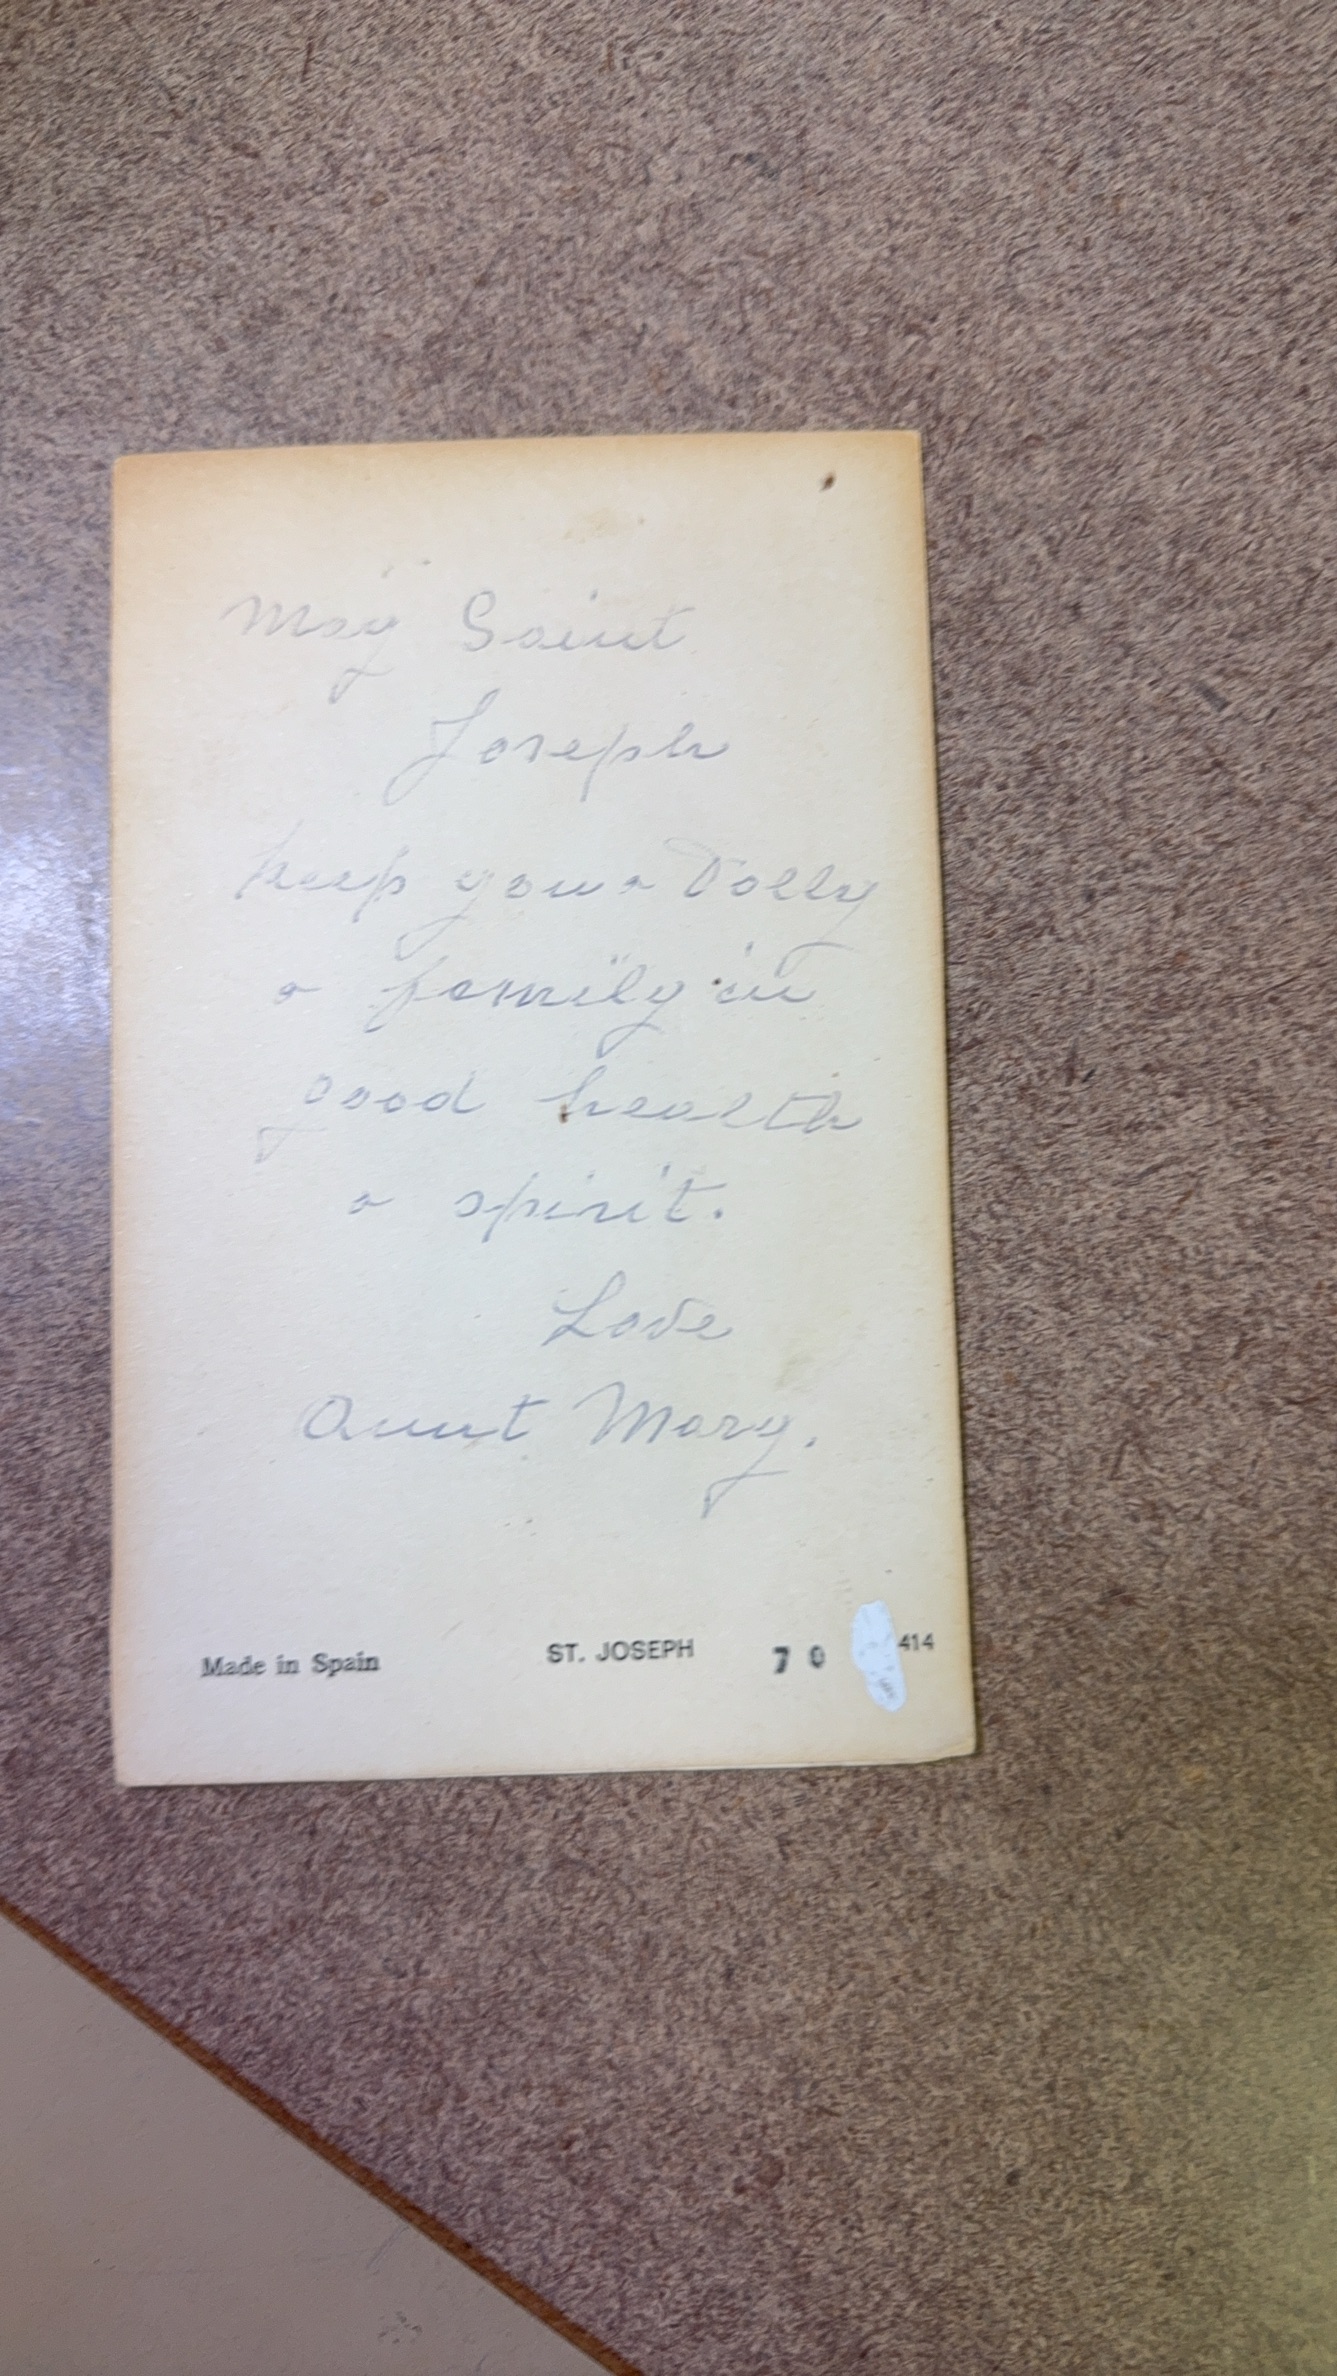 May Saint
Joseph
keep you & Dolly
& family in
good health
& spirit.
Love
Aunt Mary.
Made in Spain ST. JOSEPH 70 414